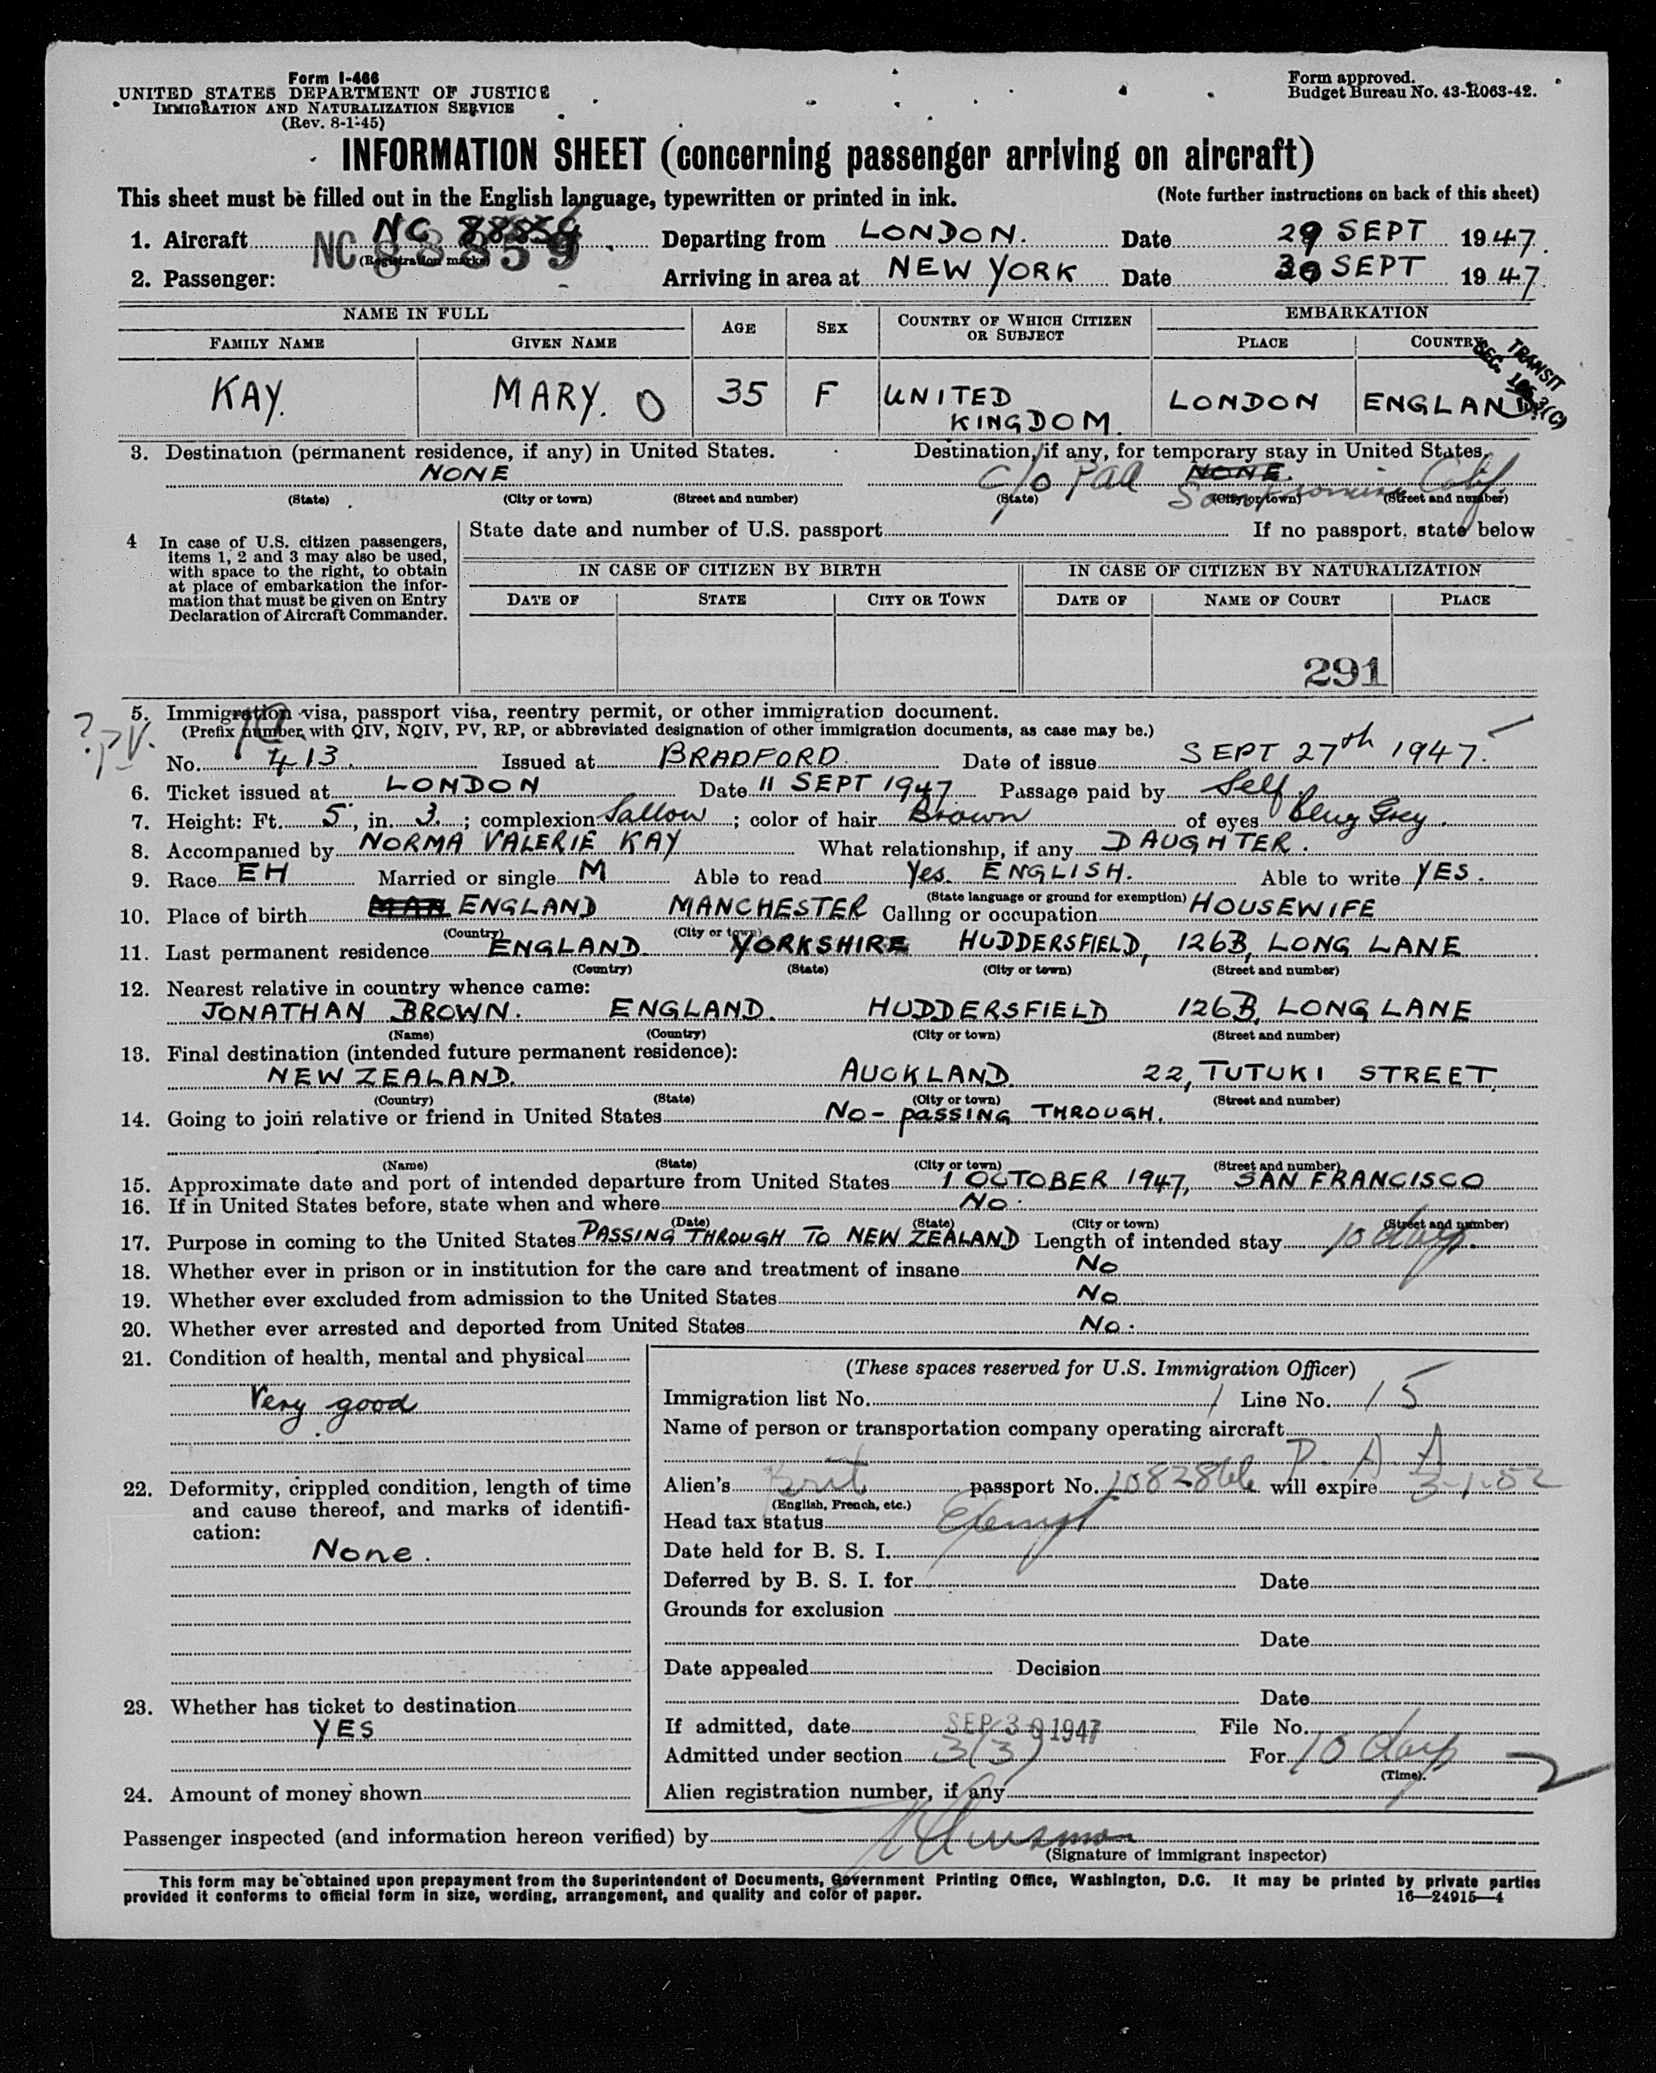 Form I-466
UNITED STATES DEPARTMENT OF JUSTICE
IMMIGRATION AND NATURALIZATION SERVICE
(Rev. 8-1-45)
Form approved.
Budget Bureau No. 43-R063-42.
INFORMATION SHEET (concerning passenger arriving on aircraft)
This sheet must be filled out in the English language, typewritten or printed in ink. (Note further instructions on back of this sheet)
1. Aircraft NC 88859 Departing from LONDON. Date 29 SEPT 1947.
(Registration marks)
2. Passenger: Arriving in area at NEW YORK Date 30 SEPT 1947.
NAME IN FULL AGE SEX COUNTRY OF WHICH CITIZEN OR SUBJECT EMBARKATION
FAMILY NAME GIVEN NAME PLACE COUNTRY
TRANSIT
SEC.
KAY. MARY. O 35 F UNITED KINGDOM. LONDON ENGLAND
3. Destination (permanent residence, if any) in United States. Destination, if any, for temporary stay in United States.
NONE c/o PAA NONE. San Francisco Calif
(State) (City or town) (Street and number) (State) (City or town) (Street and number)
4 In case of U.S. citizen passengers, items 1, 2 and 3 may also be used, with space to the right, to obtain at place of embarkation the information that must be given on Entry Declaration of Aircraft Commander.
State date and number of U.S. passport If no passport, state below
IN CASE OF CITIZEN BY BIRTH IN CASE OF CITIZEN BY NATURALIZATION
DATE OF STATE CITY OR TOWN DATE OF NAME OF COURT PLACE
291
5. Immigration visa, passport visa, reentry permit, or other immigration document.
(Prefix number with QIV, NQIV, PV, RP, or abbreviated designation of other immigration documents, as case may be.)
?PV.
No. 413. Issued at BRADFORD. Date of issue SEPT 27th 1947.
6. Ticket issued at LONDON Date 11 SEPT 1947 Passage paid by Self
7. Height: Ft. 5, in. 3.; complexion Sallow; color of hair Brown of eyes Grey.
8. Accompanied by NORMA VALERIE KAY What relationship, if any DAUGHTER.
9. Race EH Married or single M Able to read Yes. ENGLISH. Able to write YES.
(State language or ground for exemption)
10. Place of birth ENGLAND MANCHESTER Calling or occupation HOUSEWIFE
(Country) (City or town)
11. Last permanent residence ENGLAND. YORKSHIRE HUDDERSFIELD, 126B, LONG LANE
(Country) (State) (City or town) (Street and number)
12. Nearest relative in country whence came:
JONATHAN BROWN. ENGLAND. HUDDERSFIELD 126B, LONG LANE
(Name) (Country) (City or town) (Street and number)
13. Final destination (intended future permanent residence):
NEW ZEALAND. AUCKLAND. 22, TUTUKI STREET.
(Country) (State) (City or town) (Street and number)
14. Going to join relative or friend in United States NO - PASSING THROUGH.
(Name) (State) (City or town) (Street and number)
15. Approximate date and port of intended departure from United States 1 OCTOBER 1947, SAN FRANCISCO
16. If in United States before, state when and where NO.
(Date) (State) (City or town) (Street and number)
17. Purpose in coming to the United States PASSING THROUGH TO NEW ZEALAND Length of intended stay 10 days.
18. Whether ever in prison or in institution for the care and treatment of insane No
19. Whether ever excluded from admission to the United States No
20. Whether ever arrested and deported from United States No.
21. Condition of health, mental and physical
Very good
22. Deformity, crippled condition, length of time and cause thereof, and marks of identification:
None.
23. Whether has ticket to destination
YES
24. Amount of money shown
(These spaces reserved for U.S. Immigration Officer)
Immigration list No. 1 Line No. 15
Name of person or transportation company operating aircraft
P. A. A
Alien's Brit passport No. will expire 3-1-52
(English, French, etc.)
Head tax status Exempt
Date held for B. S. I.
Deferred by B. S. I. for Date
Grounds for exclusion
Date
Date appealed Decision
Date
If admitted, date SEP 30 1947 File No.
Admitted under section 3(3) For 10 days
(Time).
Alien registration number, if any
Passenger inspected (and information hereon verified) by
(Signature of immigrant inspector)
This form may be obtained upon prepayment from the Superintendent of Documents, Government Printing Office, Washington, D.C. It may be printed by private parties
provided it conforms to official form in size, wording, arrangement, and quality and color of paper. 16—24915—4